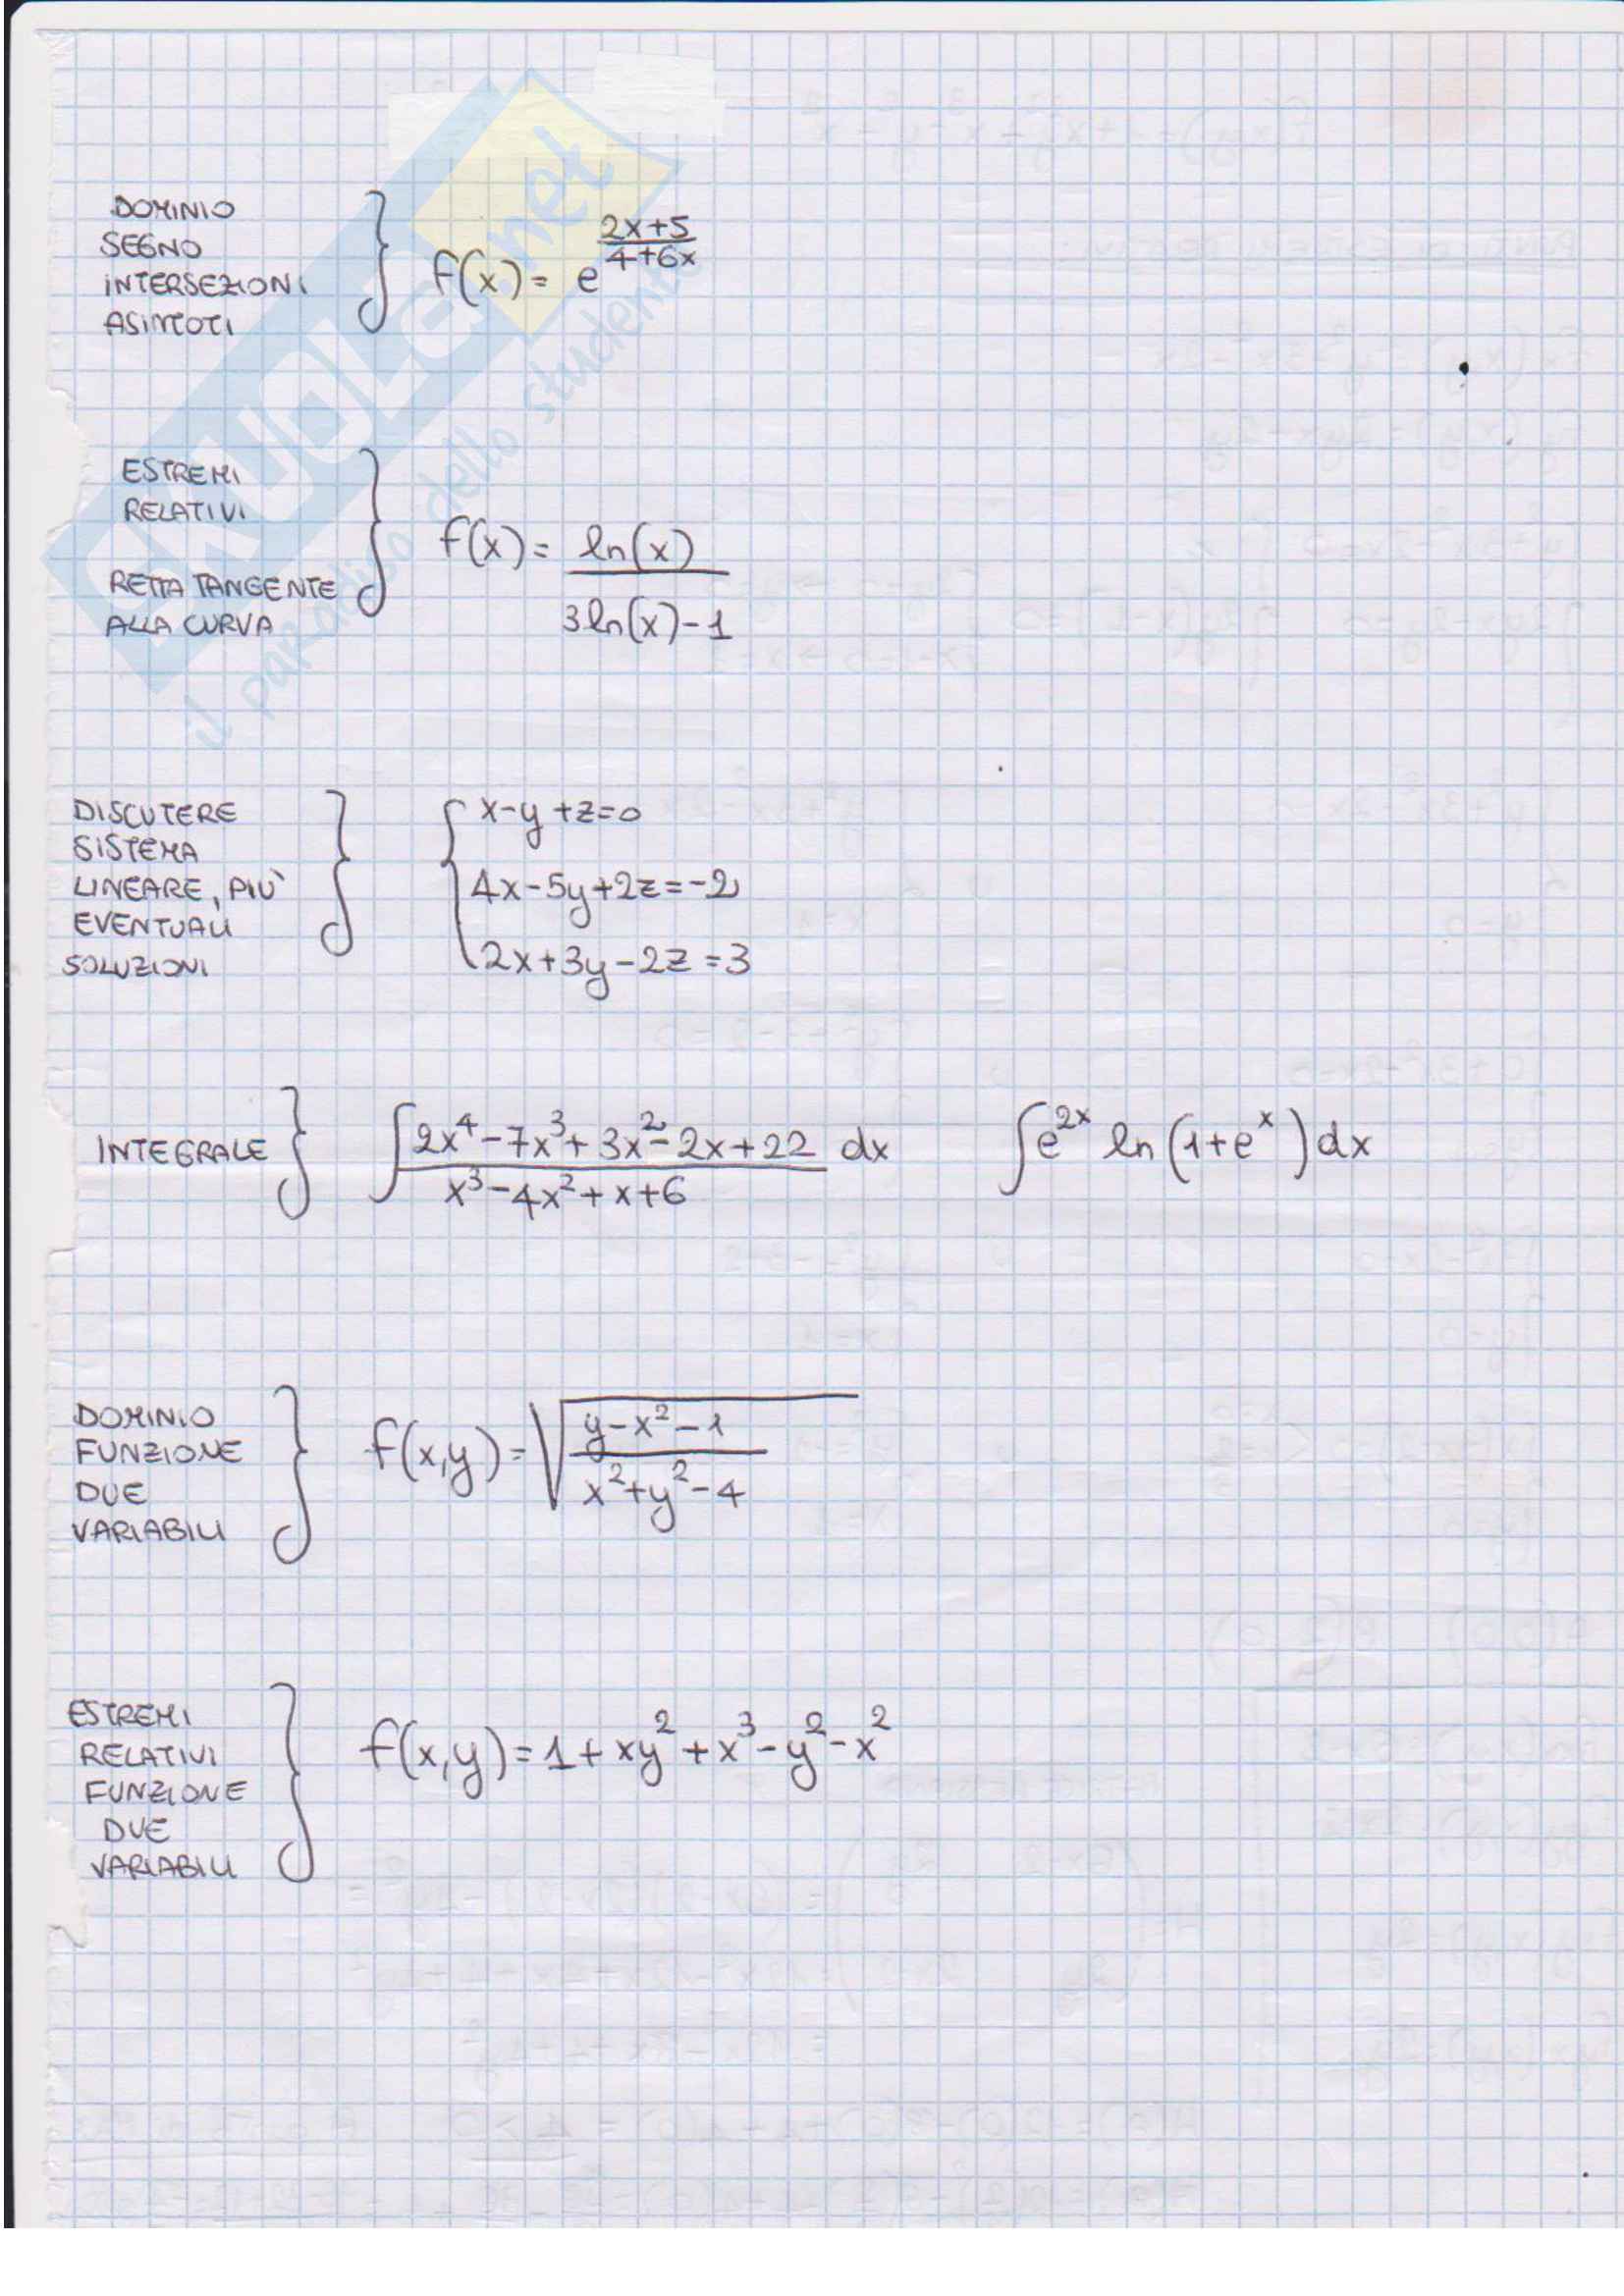 DOMINIO
SEGNO
INTERSEZIONI
ASINTOTI
f(x) = e^((2x+5)/(4+6x))
ESTREMI
RELATIVI
RETTA TANGENTE
ALLA CURVA
f(x) = ln(x) / (3ln(x)-1)
DISCUTERE
SISTEMA
LINEARE, PIÙ
EVENTUALI
SOLUZIONI
x-y+z=0
4x-5y+2z=-2
2x+3y-2z=3
INTEGRALE
∫ (2x⁴-7x³+3x²-2x+22) / (x³-4x²+x+6) dx
∫ e^(2x) ln(1+e^x) dx
DOMINIO
FUNZIONE
DUE
VARIABILI
f(x,y) = √((y-x²-1) / (x²+y²-4))
ESTREMI
RELATIVI
FUNZIONE
DUE
VARIABILI
f(x,y)=1+xy²+x³-y²-x²
SKUOLA.net
il paradiso dello studente